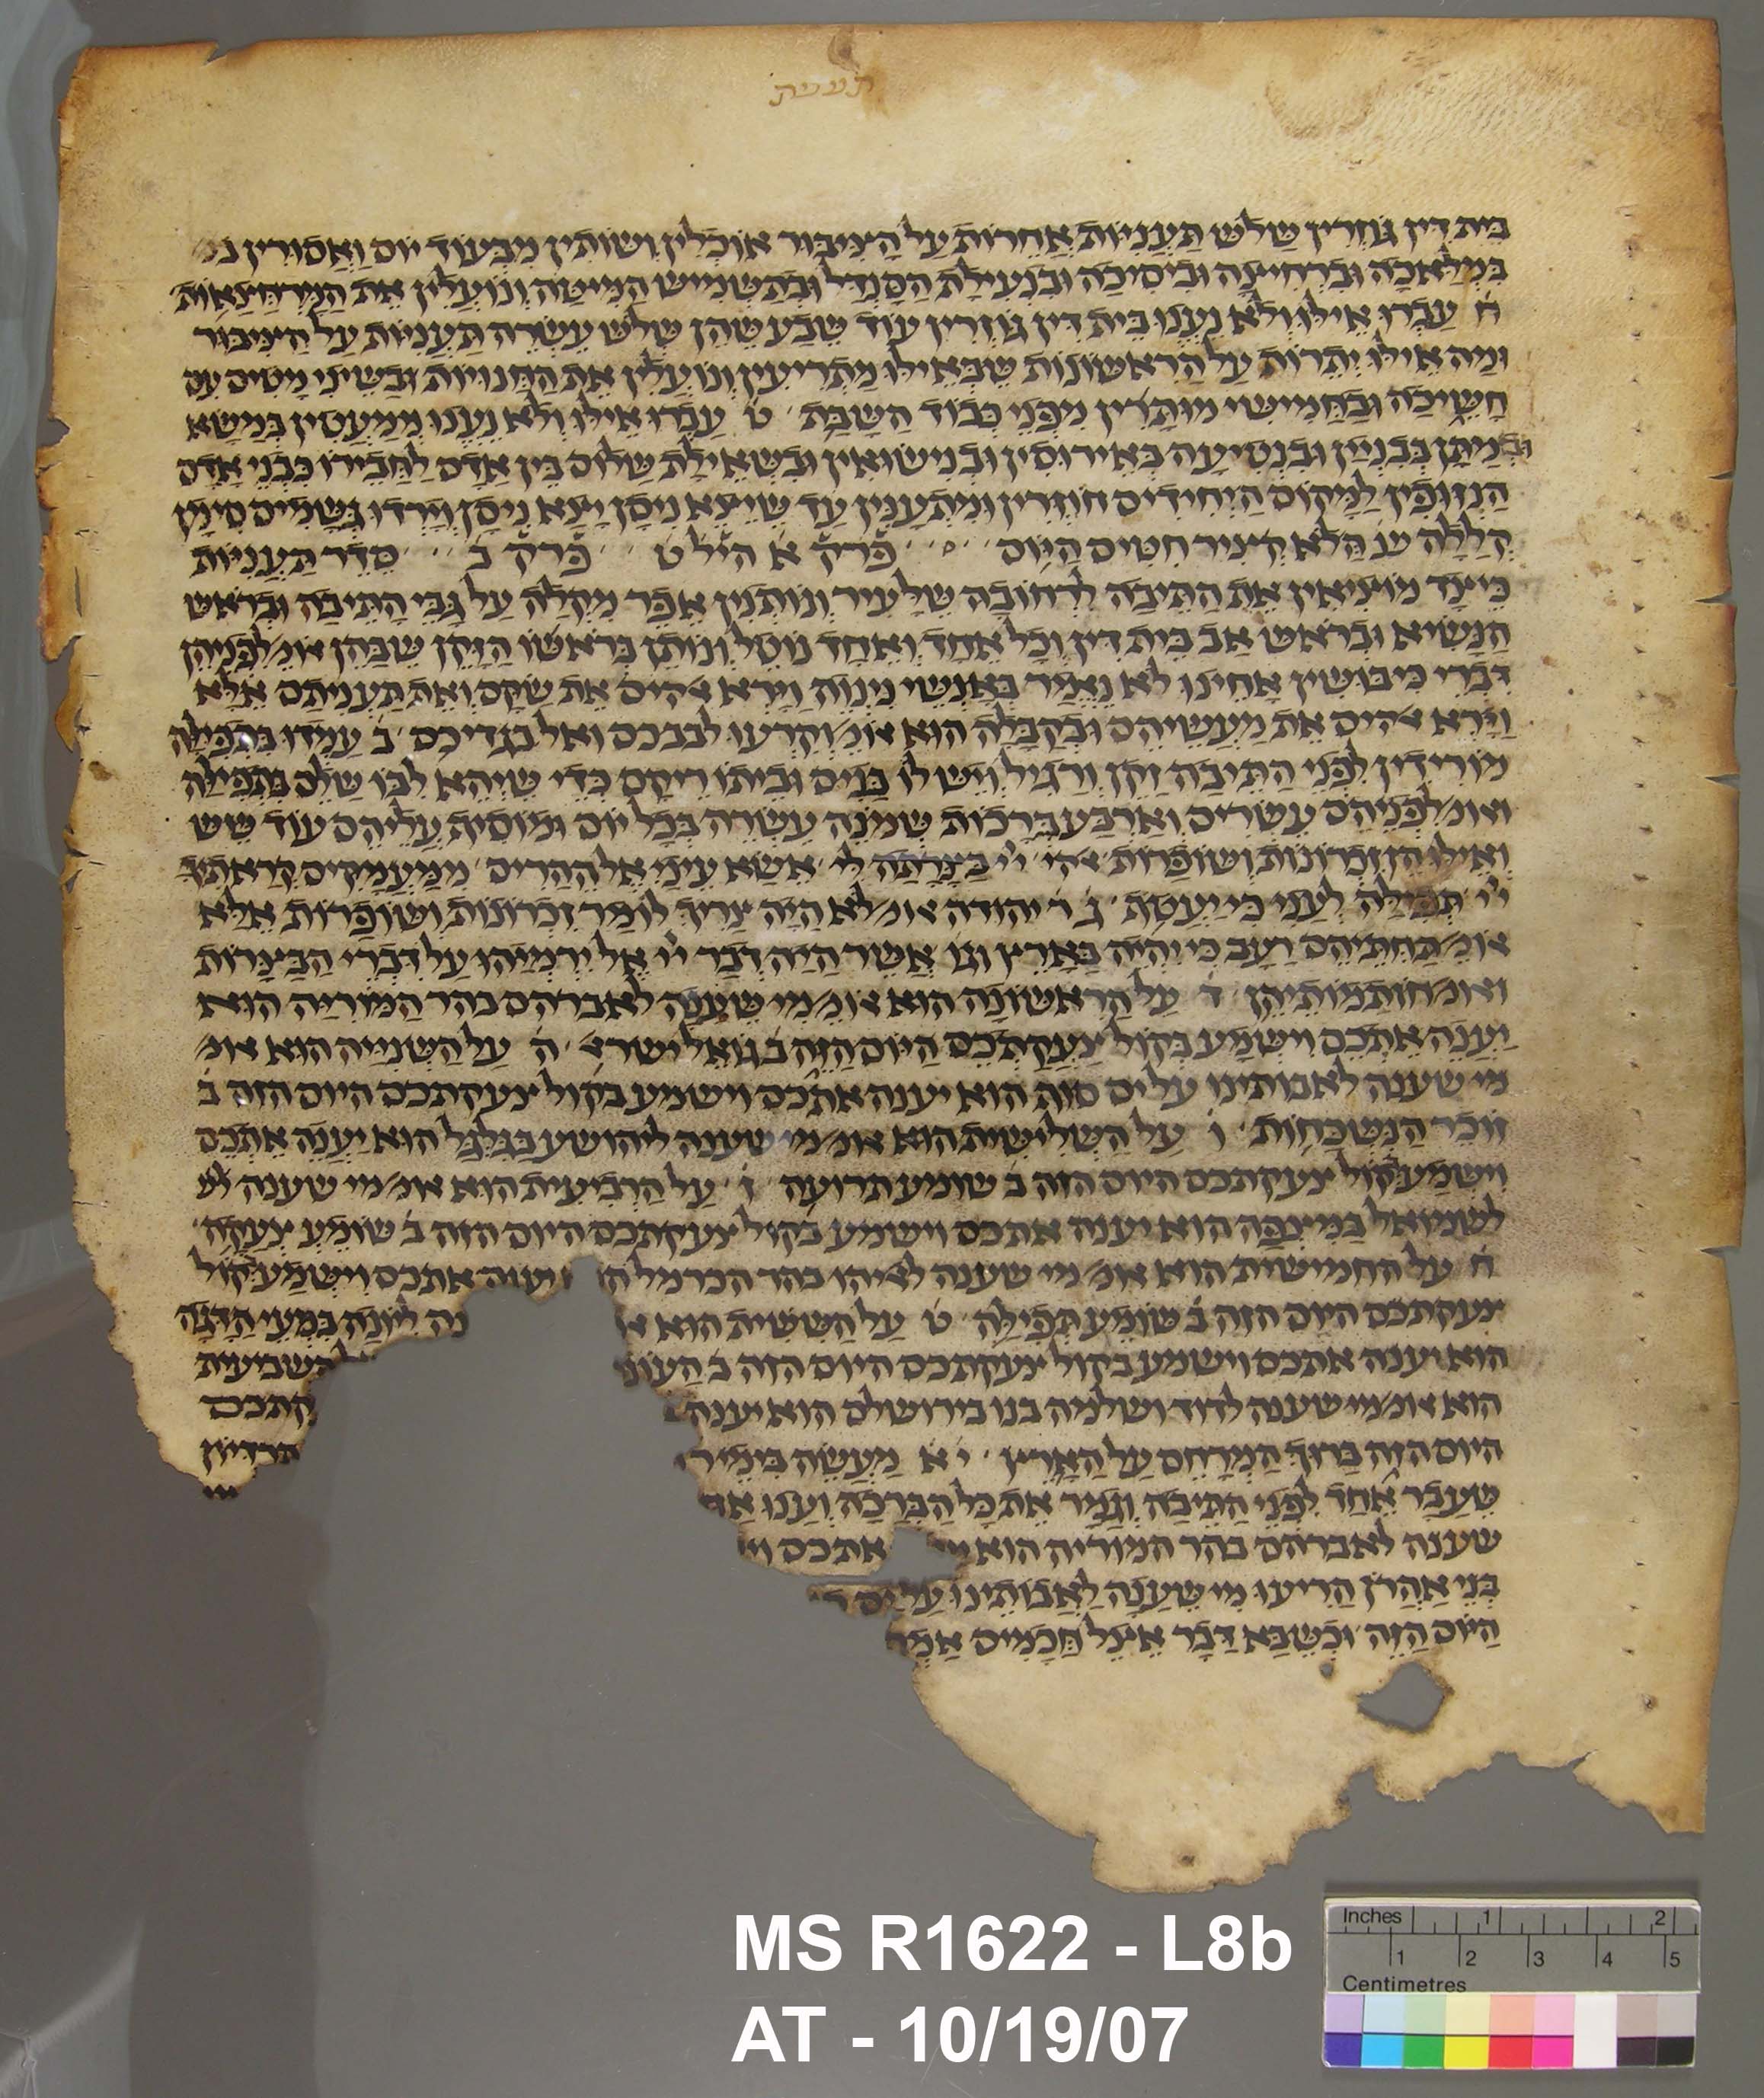 תענית
בית דין גוזרין שלש תעניות אחרות על הציבור אוכלין ושותין מבעוד יום ואסורין
במלאכה וברחיצה ובסיכה ובנעילת הסנדל ובתשמיש המיטה ונועלין את המרחצאות
ח עברו אילו ולא נענו בית דין גוזרין עוד שבע שהן שלש עשרה תעניות על הציבור
ומה אילו יתרות על הראשונות שבאילו מתריעין ונועלין את החנויות ובשיני מטים עם
חשיכה ובחמישי מותרין מפני כבוד השבת ט עברו אילו ולא נענו ממעטין במשא
ובמתן בבנין ובנטיעה באירוסין ובנישואין ובשאילת שלום בין אדם לחבירו כבני אדם
הנזופין למקום היחידים חוזרין ומתענין עד שיצא ניסן יצא ניסן וירדו גשמים סימן
קללה שנ הלא קציר חטים היום פרק א היל ט פרק ב סדר תעניות
כיצד מוציאין את התיבה לרחובה שלעיר ונותנין אפר מקלה על גבי התיבה ובראש
הנשיא ובראש אב בית דין וכל אחד ואחד נוטל ונותן בראשו הזקן שבהן אומ לפניהן
דברי כיבושין אחינו לא נאמר באנשי נינוה וירא אהים את שקם ואת תעניתם אלא
וירא אהים את מעשיהם ובקבלה הוא אומ וקרעו לבבכם ואל בגדיכם ב עמדו בתפילה
מורידין לפני התיבה זקן ורגיל ויש לו בנים וביתו ריקם כדי שיהא לבו שלם בתפילה
ואומ לפניהם עשרים וארבע ברכות שמונה עשרה בכל יום ומוסיף עליהם עוד שש
ואילו הן זכרונות ושופרות אל יי בצרתה לי אשא עיני אל ההרים ממעמקים קראתיך
יי תפילה לעני כי יעטף ג ר יהודה אומ לא היה צריך לומר זכרונות ושופרות אלא
אומ תחתיהם רעב כי יהיה בארץ וגו אשר היה דבר יי אל ירמיהו על דברי הבצרות
ואומ חותמותיהן ד על הראשונה הוא אומ מי שענה לאברהם בהר המוריה הוא
יענה אתכם וישמע בקול צעקתכם היום הזה ב גואל ישרא ה על השנייה הוא אומ
מי שענה לאבותינו על ים סוף הוא יענה אתכם וישמע בקול צעקתכם היום הזה ב
זוכר הנשכחות ו על השלישית הוא אומ מי שענה ליהושע בגלגל הוא יענה אתכם
וישמע קול צעקתכם היום הזה ב שומע תרועה ז על הרביעית הוא אומ מי שענה
לשמואל במיצפה הוא יענה אתכם וישמע בקול צעקתכם היום הזה ב שומע צעקה
ח על החמישית הוא אומ מי שענה לאליהו בהר הכרמל יענה אתכם וישמע קול
צעקתכם היום הזה ב שומע תפילה ט על הששית הוא ליונה במעי הדגה
הוא יענה אתכם וישמע בקול צעקתכם היום הזה ב השביעית
הוא אומ מי שענה לדוד ושלמה בנו בירושלם הוא יענה
היום הזה ברוך המרחם על הארץ יא מעשה בימי
שעבר אחד לפני התיבה וגמר את כל הברכה וענו
שענה לאברהם בהר המוריה הוא אתכם
בני אהרן הריעו מי שענה לאבותינו על ים
היום הזה וכשבא דבר אצל חכמים
MS R1622 - L8b
AT - 10/19/07
Inches 1 2
1 2 3 4 5
Centimetres